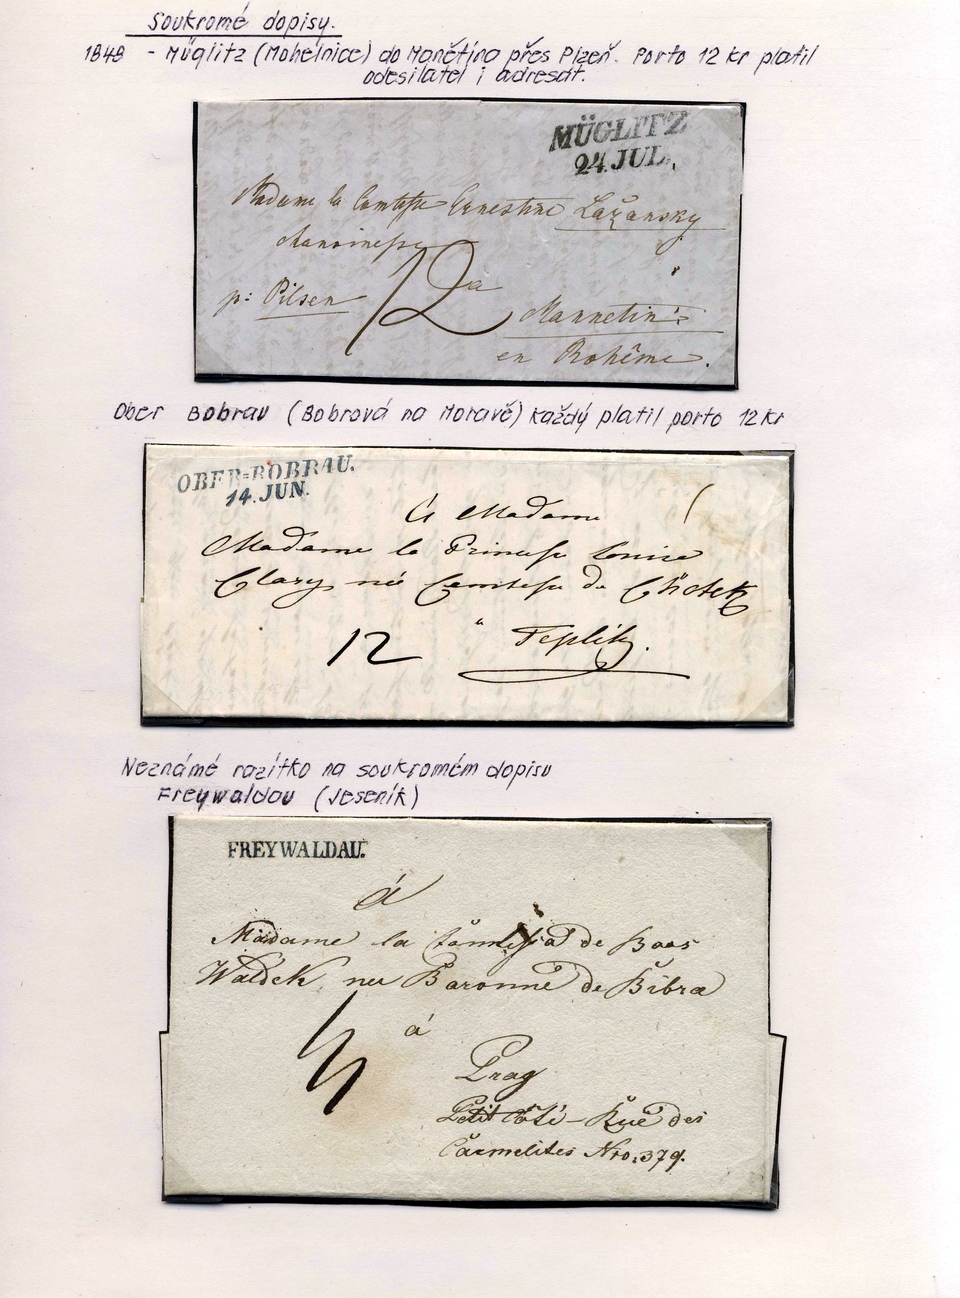 Soukromé dopisy.
1848 - Müglitz (Mohelnice) do Manětína přes Plzeň. Porto 12 kr platil
odesilatel i adresát.
MÜGLITZ
24. JUL.
Madame la Comtesse Ernestine Lažansky
p: Pilsen 12 a
Mannetin
en Bohême.
Ober Bobrau (Bobrová na Moravě) každý platil porto 12 kr
OBER=BOBRAU.
14. JUN.
à Madame
Madame la Princesse Louise
Clary née Comtesse de Chotek
12 à Teplitz.
Neznámé razítko na soukromém dopisu
Freywaldau (Jeseník)
FREYWALDAU.
á
Madame la de Boos
Waldek née Baronne de Bibra
á
Prag
Petit Côté - Rue des
Carmelites Nro: 379.